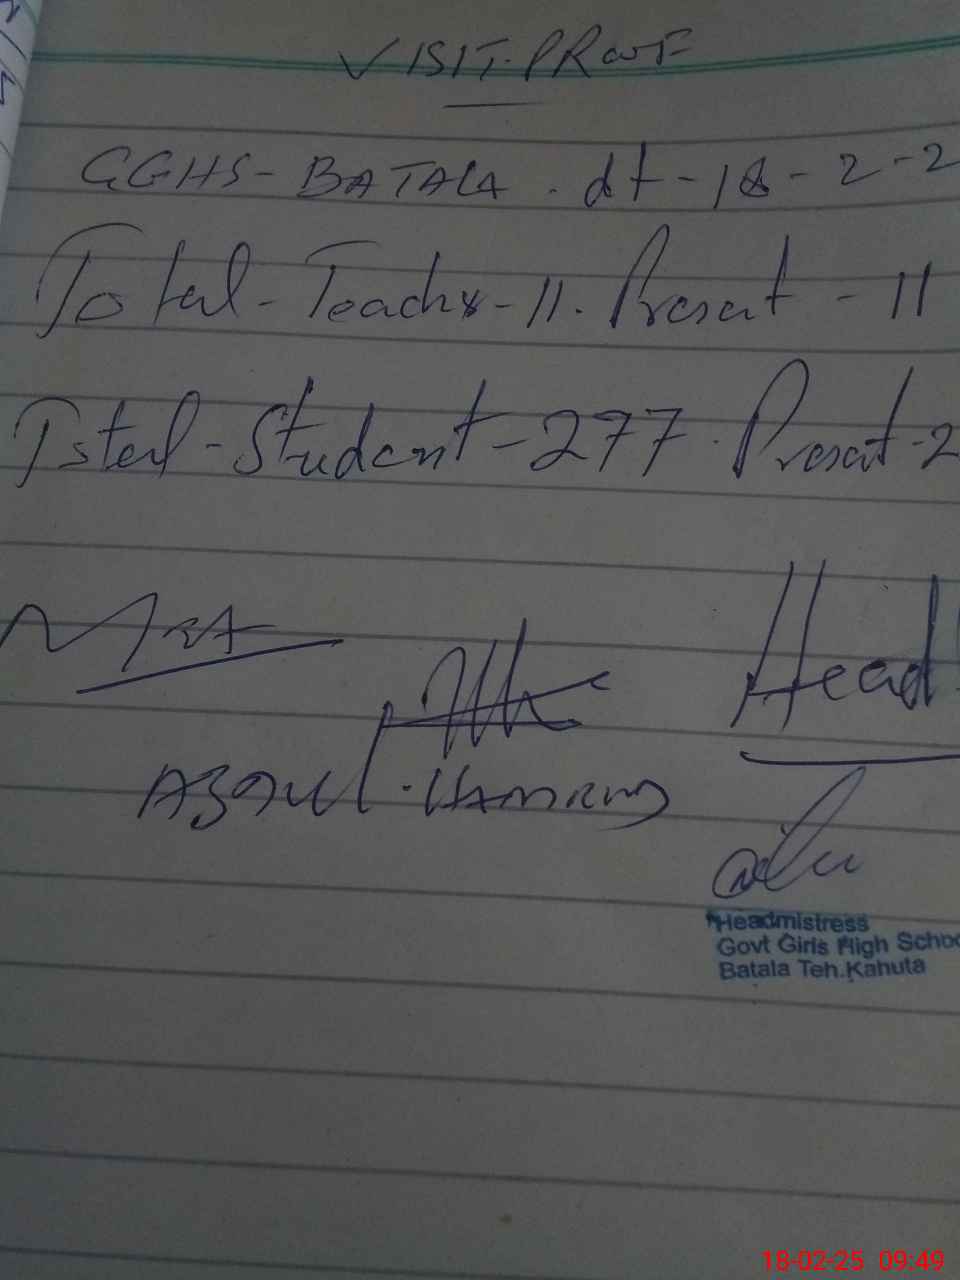 VISIT-PROOF
GGHS-BATALA. dt-18-2-2
Total-Teachs-11. Present-11
Total-Student-277. Present-2
MEA
Head
ABDUL
Headmistress
Govt Girls High Schoo
Batala Teh.Kahuta
18-02-25 09:49